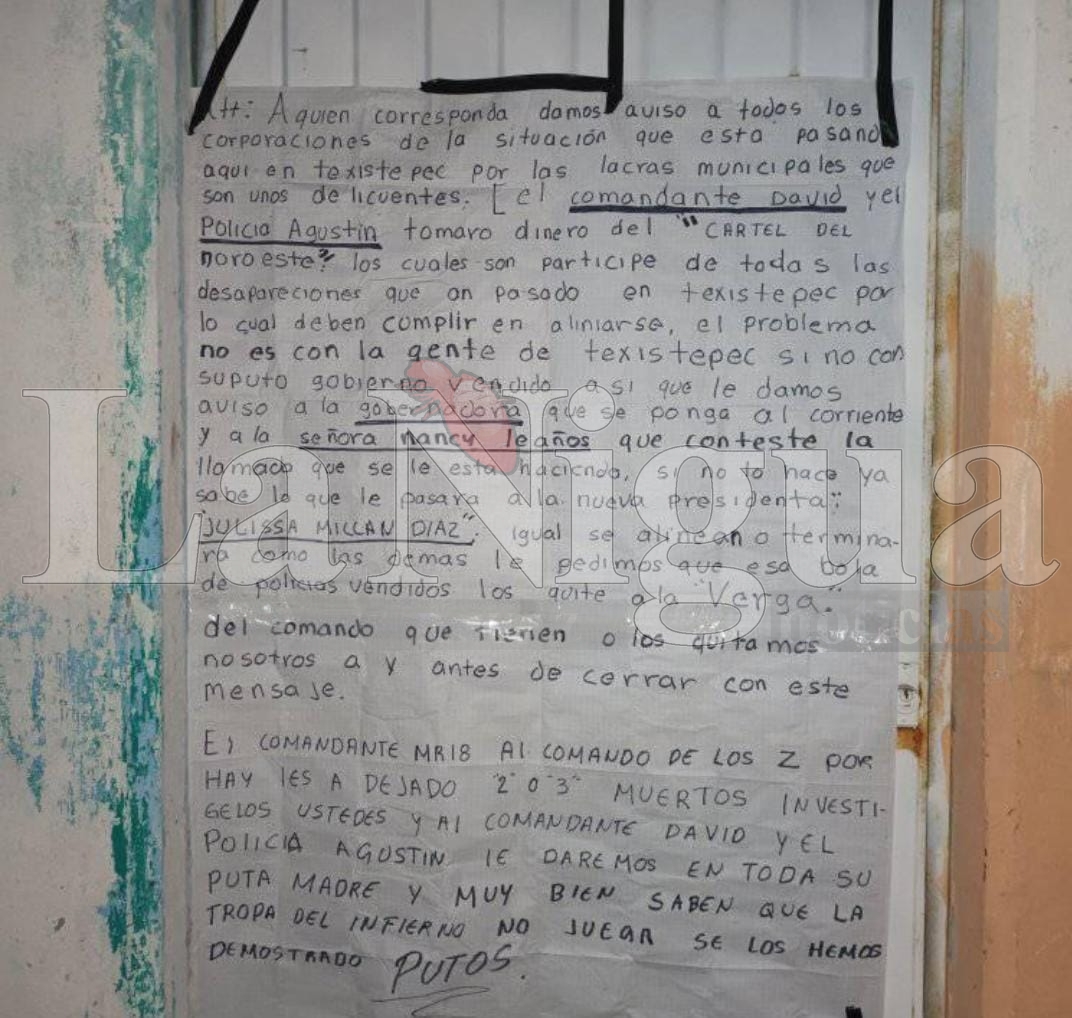 Att: A quien corresponda damos aviso a todos los
corporaciones de la situación que esta pasando
aqui en texistepec por las lacras municipales que
son unos delicuentes. [el comandante David y el
Policia Agustin tomaro dinero del "CARTEL DEL
noroeste" los cuales son participe de todas las
desapareciones que an pasado en texistepec por
lo cual deben cumplir en aliniarse, el problema
no es con la gente de texistepec si no con
suputo gobierno vendido a si que le damos
aviso a la gobernadora que se ponga al corriente
y a la señora nancy leaños que conteste la
llamado que se le esta haciendo, si no lo hace ya
sabe lo que le pasara a la nueva presidenta:
"JULISSA MILLAN DIAZ". igual se alinean o termina-
ra como las demas le pedimos que esa bola
de policias vendidos los quite a la "Verga."
del comando que tienen o los quitamos
nosotros a y antes de cerrar con este
mensaje.
El COMANDANTE MR18 Al COMANDO DE LOS Z POR
HAY lES A DEJADO "2" O "3" MUERTOS INVESTI-
GELOS USTEDES Y Al COMANDANTE DAVID Y EL
POlICIA AGUSTIN lE DAREMOS EN TODA SU
PUTA MADRE Y MUY BIEN SABEN QUE LA
TROPA DEL INFIERNO NO JUEGA SE LOS HEMOS
DEMOSTRADO PUTOS.
LaNigua